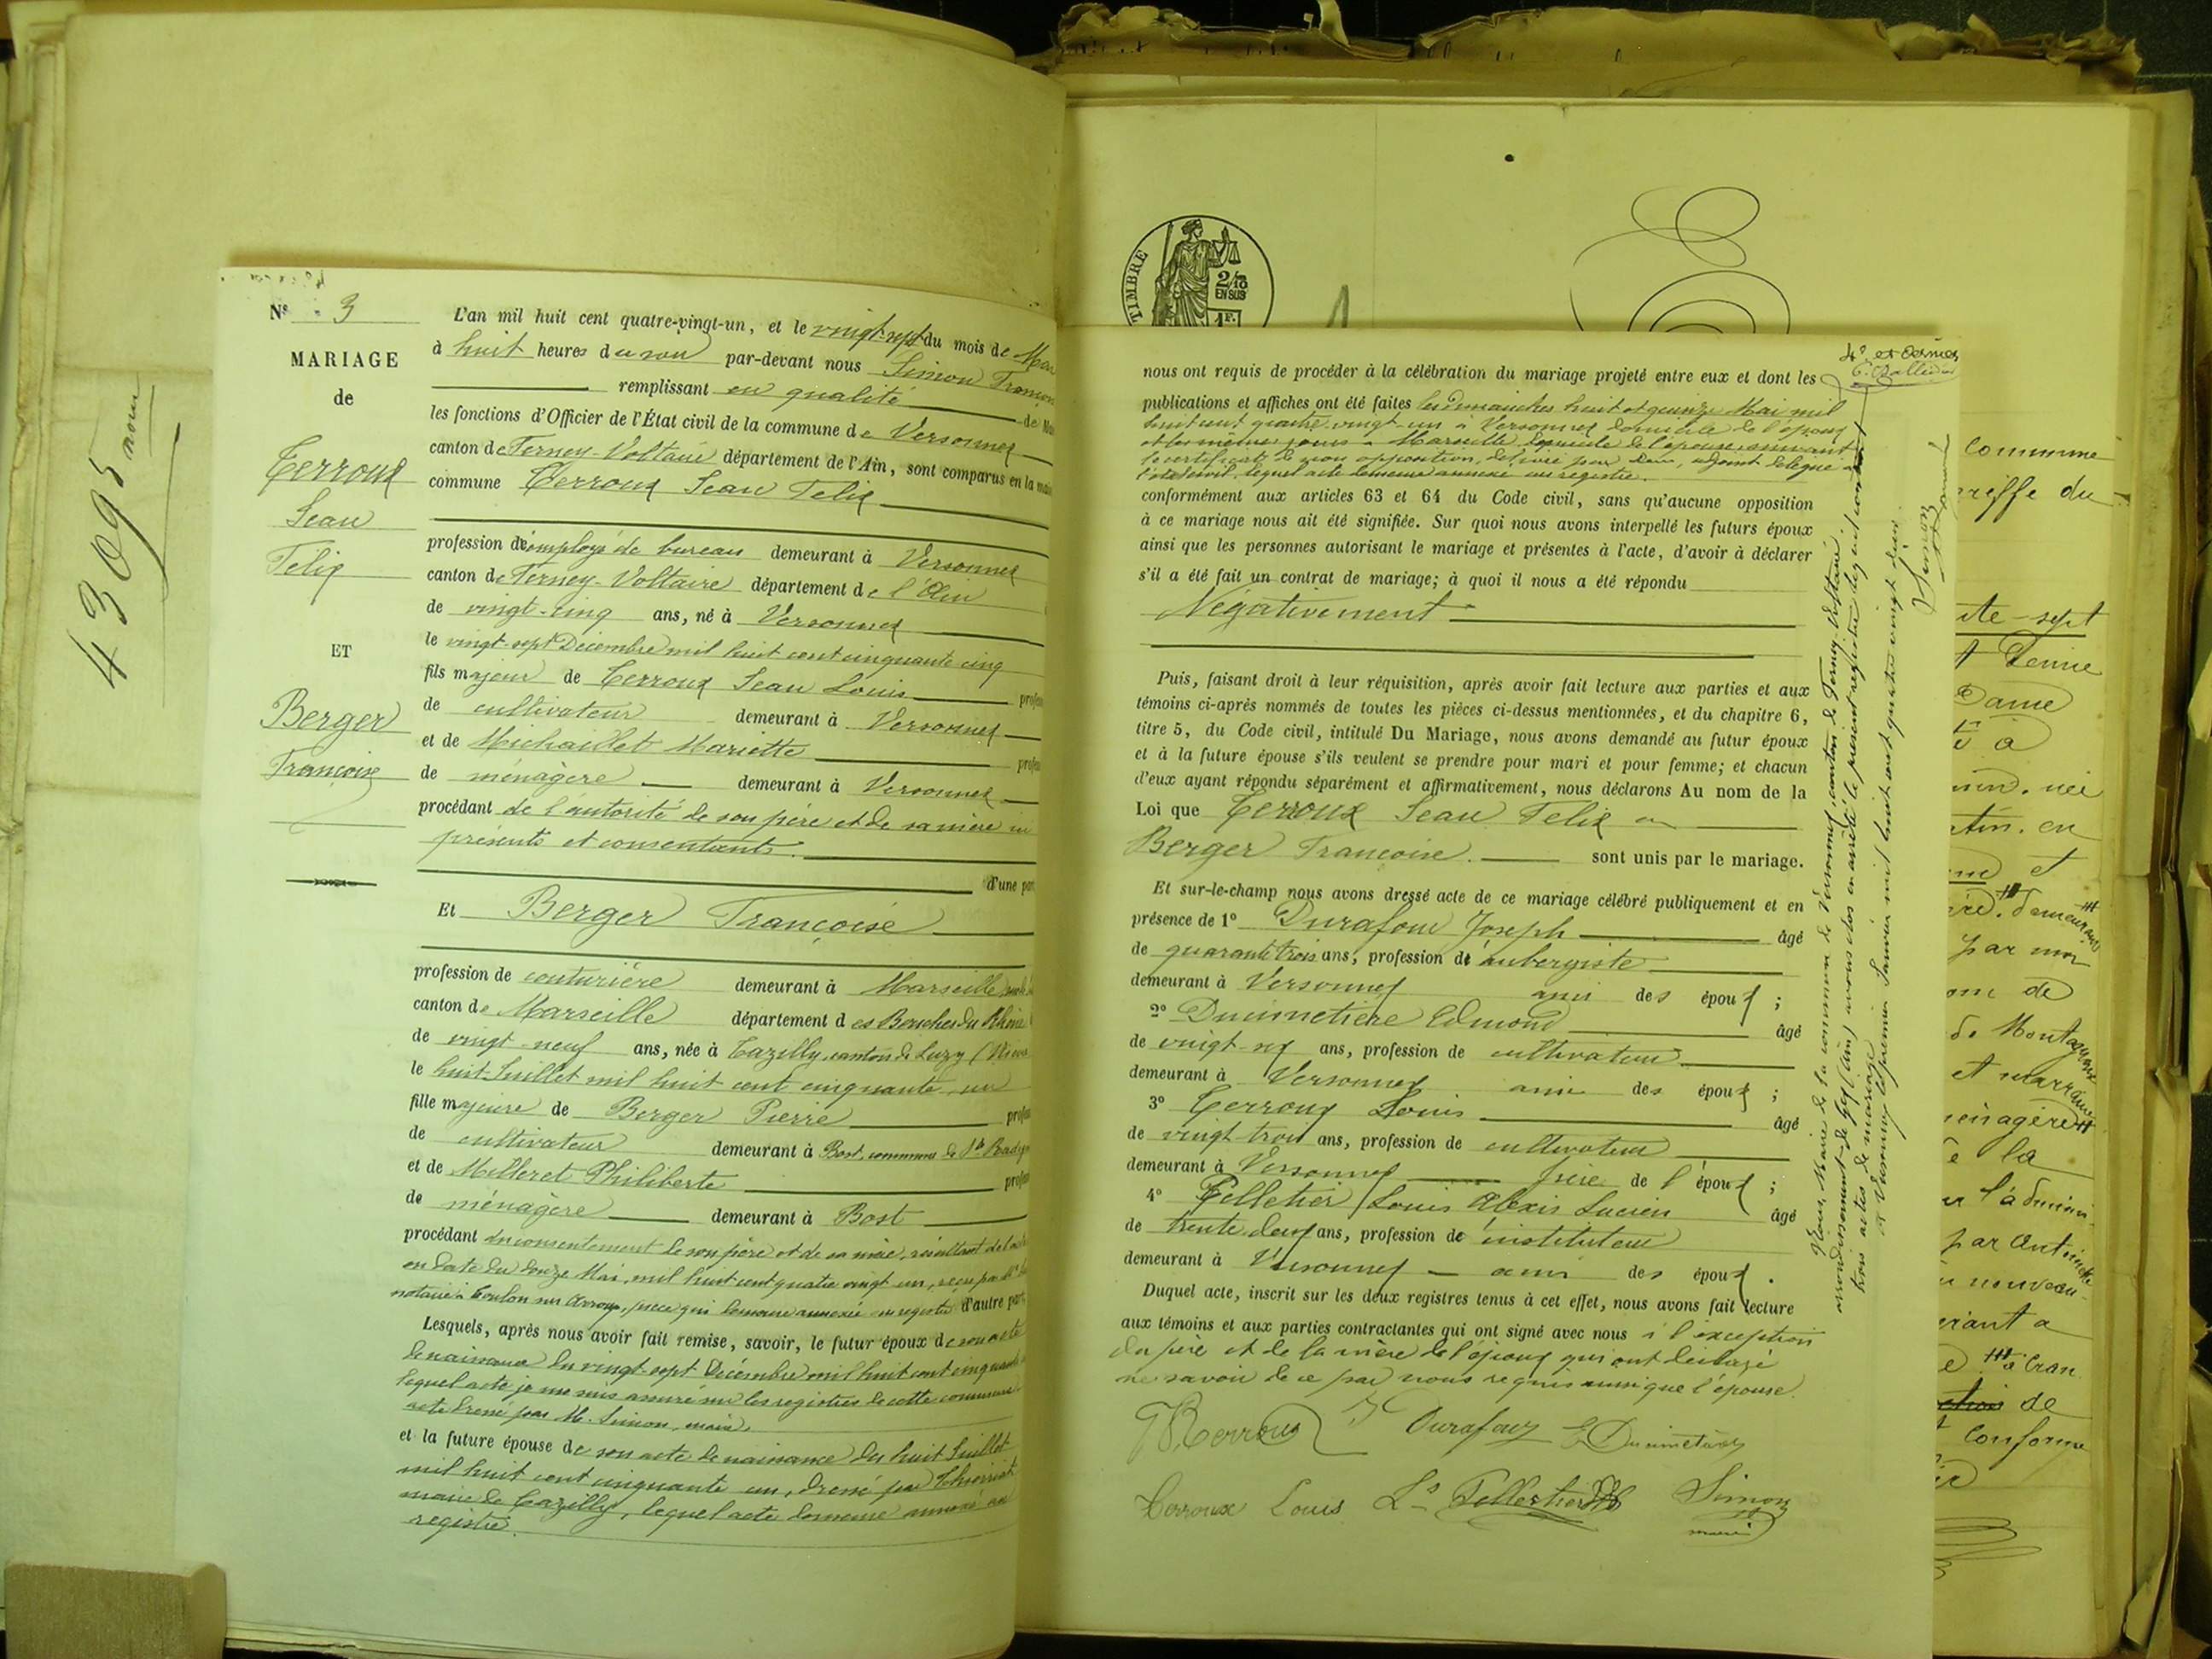 43095
N° 3
MARIAGE
de
Terroux
Jean
Felix
ET
Berger
Françoise
L'an mil huit cent quatre-vingt-un, et le vingt-sept du mois de Mai
à huit heures du soir par-devant nous Simon François
remplissant en qualité de
les fonctions d'Officier de l'État civil de la commune de Versonnex
canton de Ferney-Voltaire département de l'Ain, sont comparus en la
commune Terroux Jean Felix
profession d'employé de bureau demeurant à Versonnex
canton de Ferney-Voltaire département de l'Ain
de vingt-cinq ans, né à Versonnex
le vingt-sept Décembre mil huit cent cinquante cinq
fils majeur de Terroux Jean Louis
de cultivateur demeurant à Versonnex
et de Michaillet Mariette
de ménagère demeurant à Versonnex
procédant de l'autorité de son père et de sa mère ici
présents et consentants.
d'une part
Et Berger Françoise
profession de couturière demeurant à Marseille
canton de Marseille département des Bouches du Rhône
de vingt-neuf ans, née à Tazilly canton de Luzy (Nièvre
le huit Juillet mil huit cent cinquante un
fille majeure de Berger Pierre
de cultivateur demeurant à Bost, commune de Ste Radeg
et de Milleret Philiberte
de ménagère demeurant à Bost
procédant du consentement de son père et de sa mère, résultant de
en date du douze Mai, mil huit cent quatre vingt un, reçu par
notaire à Toulon sur Arroux, pièce qui demeure annexée au registre d'autre part
Lesquels, après nous avoir fait remise, savoir, le futur époux de son acte
de naissance du vingt-sept Décembre mil huit cent cinquante
lequel acte je me suis assuré sur les registres de cette commune
acte dressé par M. Simon, maire.
et la future épouse de son acte de naissance du huit Juillet
mil huit cent cinquante un, dressé par
maire de Tazilly, lequel acte demeure annexé au
registre.
TIMBRE
2/10
EN SUS
1F.
4e et dernier
nous ont requis de procéder à la célébration du mariage projeté entre eux et dont les
publications et affiches ont été faites les dimanches huit et quinze Mai mil
huit cent quatre vingt un à Versonnex domicile de l'époux
et les mêmes jours à Marseille domicile de l'épouse, suivant
le certificat de non opposition, délivré par adjoint délégué à
l'état civil, lequel acte demeure annexé au registre.
conformément aux articles 63 et 64 du Code civil, sans qu'aucune opposition
à ce mariage nous ait été signifiée. Sur quoi nous avons interpellé les futurs époux
ainsi que les personnes autorisant le mariage et présentes à l'acte, d'avoir à déclarer
s'il a été fait un contrat de mariage; à quoi il nous a été répondu
Négativement
Puis, faisant droit à leur réquisition, après avoir fait lecture aux parties et aux
témoins ci-après nommés de toutes les pièces ci-dessus mentionnées, et du chapitre 6,
titre 5, du Code civil, intitulé Du Mariage, nous avons demandé au futur époux
et à la future épouse s'ils veulent se prendre pour mari et pour femme; et chacun
d'eux ayant répondu séparément et affirmativement, nous déclarons Au nom de la
Loi que Terroux Jean Felix et
Berger Françoise. sont unis par le mariage.
Et sur-le-champ nous avons dressé acte de ce mariage célébré publiquement et en
présence de 1° Durafour Joseph âgé
de quarante trois ans, profession d'aubergiste
demeurant à Versonnex ami des époux ;
2° Ducimetière Edmond âgé
de vingt-six ans, profession de cultivateur
demeurant à Versonnex ami des époux ;
3° Terroux Louis âgé
de vingt trois ans, profession de cultivateur
demeurant à Versonnex frère de l'époux ;
4° Pelletier Louis Alexis Lucien âgé
de trente deux ans, profession d'instituteur
demeurant à Versonnex ami des époux.
Duquel acte, inscrit sur les deux registres tenus à cet effet, nous avons fait lecture
aux témoins et aux parties contractantes qui ont signé avec nous à l'exception
du père et de la mère de l'époux qui ont déclaré
ne savoir de ce par nous requis ainsi que l'épouse.
Terroux J Durafour E Ducimetière
Terroux Louis Ls Pelletier Simon
maire
Nous, Maire de la commune de Versonnex, canton de Ferney-Voltaire,
arrondissement de Gex (Ain) avons clos et arrêté le présent registre
trois actes de mariage
A Versonnex le premier Janvier mil huit cent quatre vingt deux.
Simon
commune
greffe du
te-sept
Dame
à
en
et
demeurant
par
de
de Montagneux
et marraine
ménagère
la
l'admini
par Antoinette
nouveau
Cran
de
Conforme